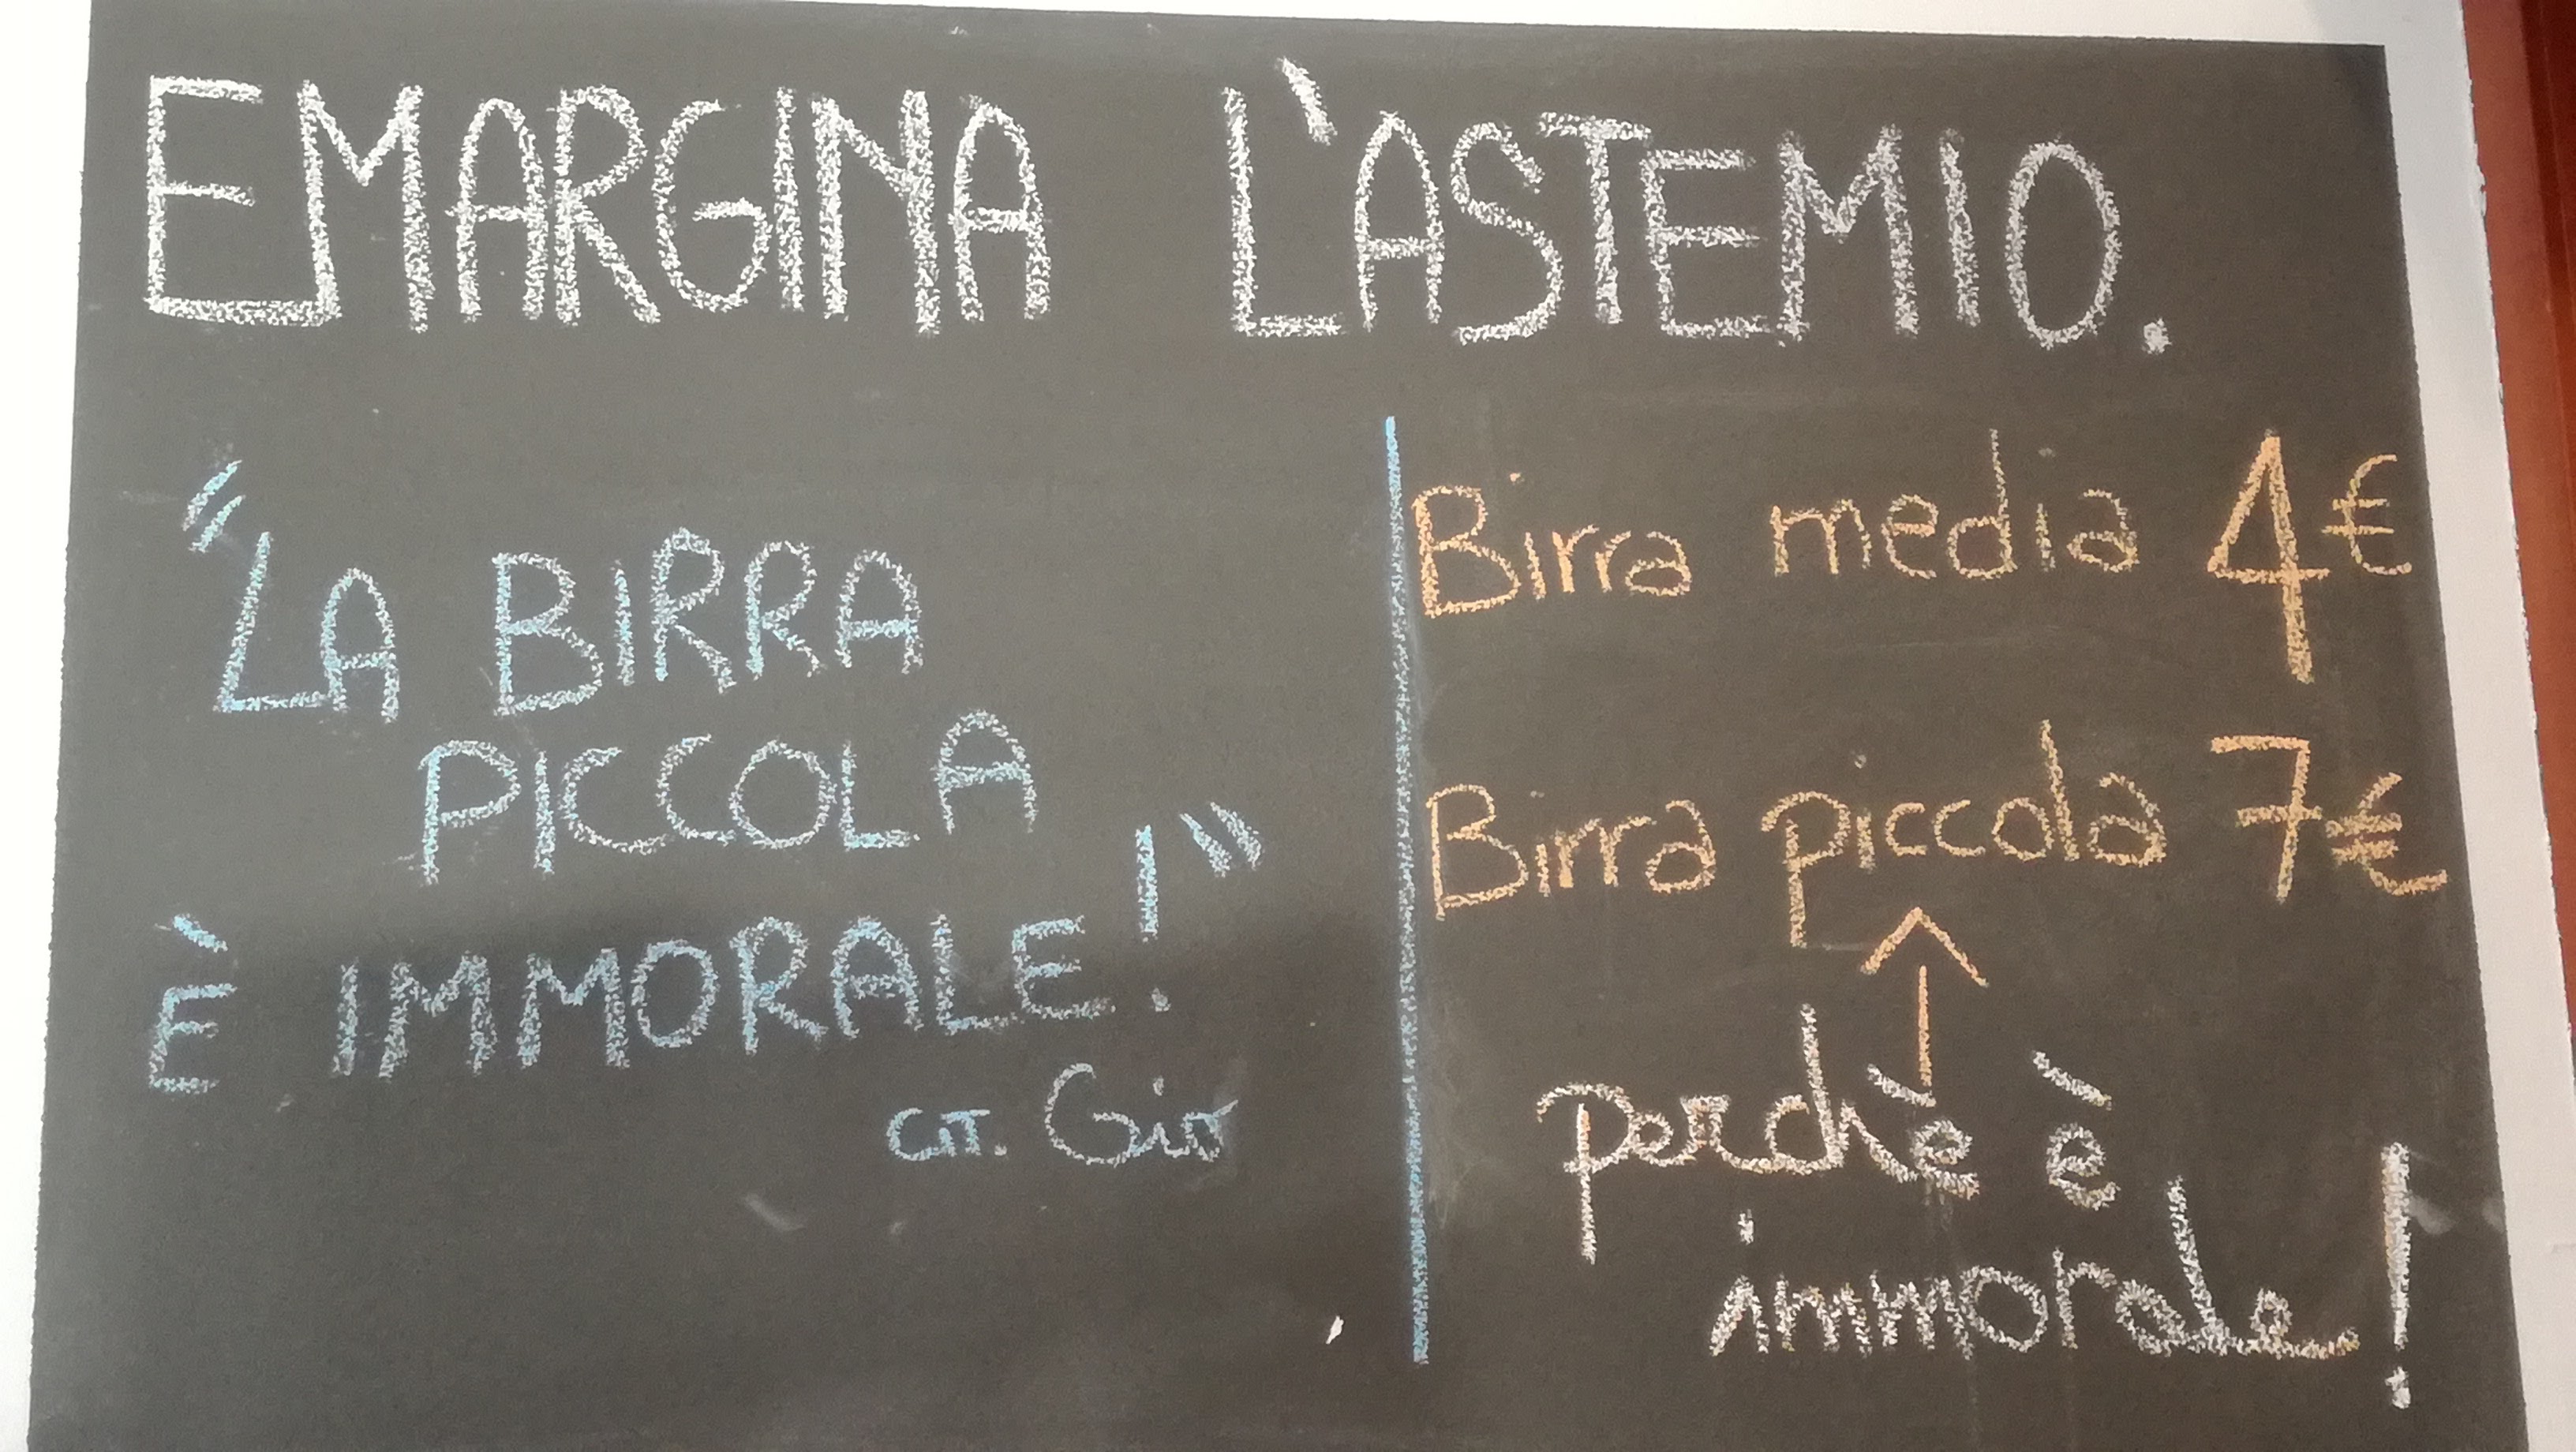 EMARGINA L'ASTEMIO.
"LA BIRRA
PICCOLA
È IMMORALE!"
CIT. Giò
Birra media 4€
Birra piccola 7€
perchè è
immorale!